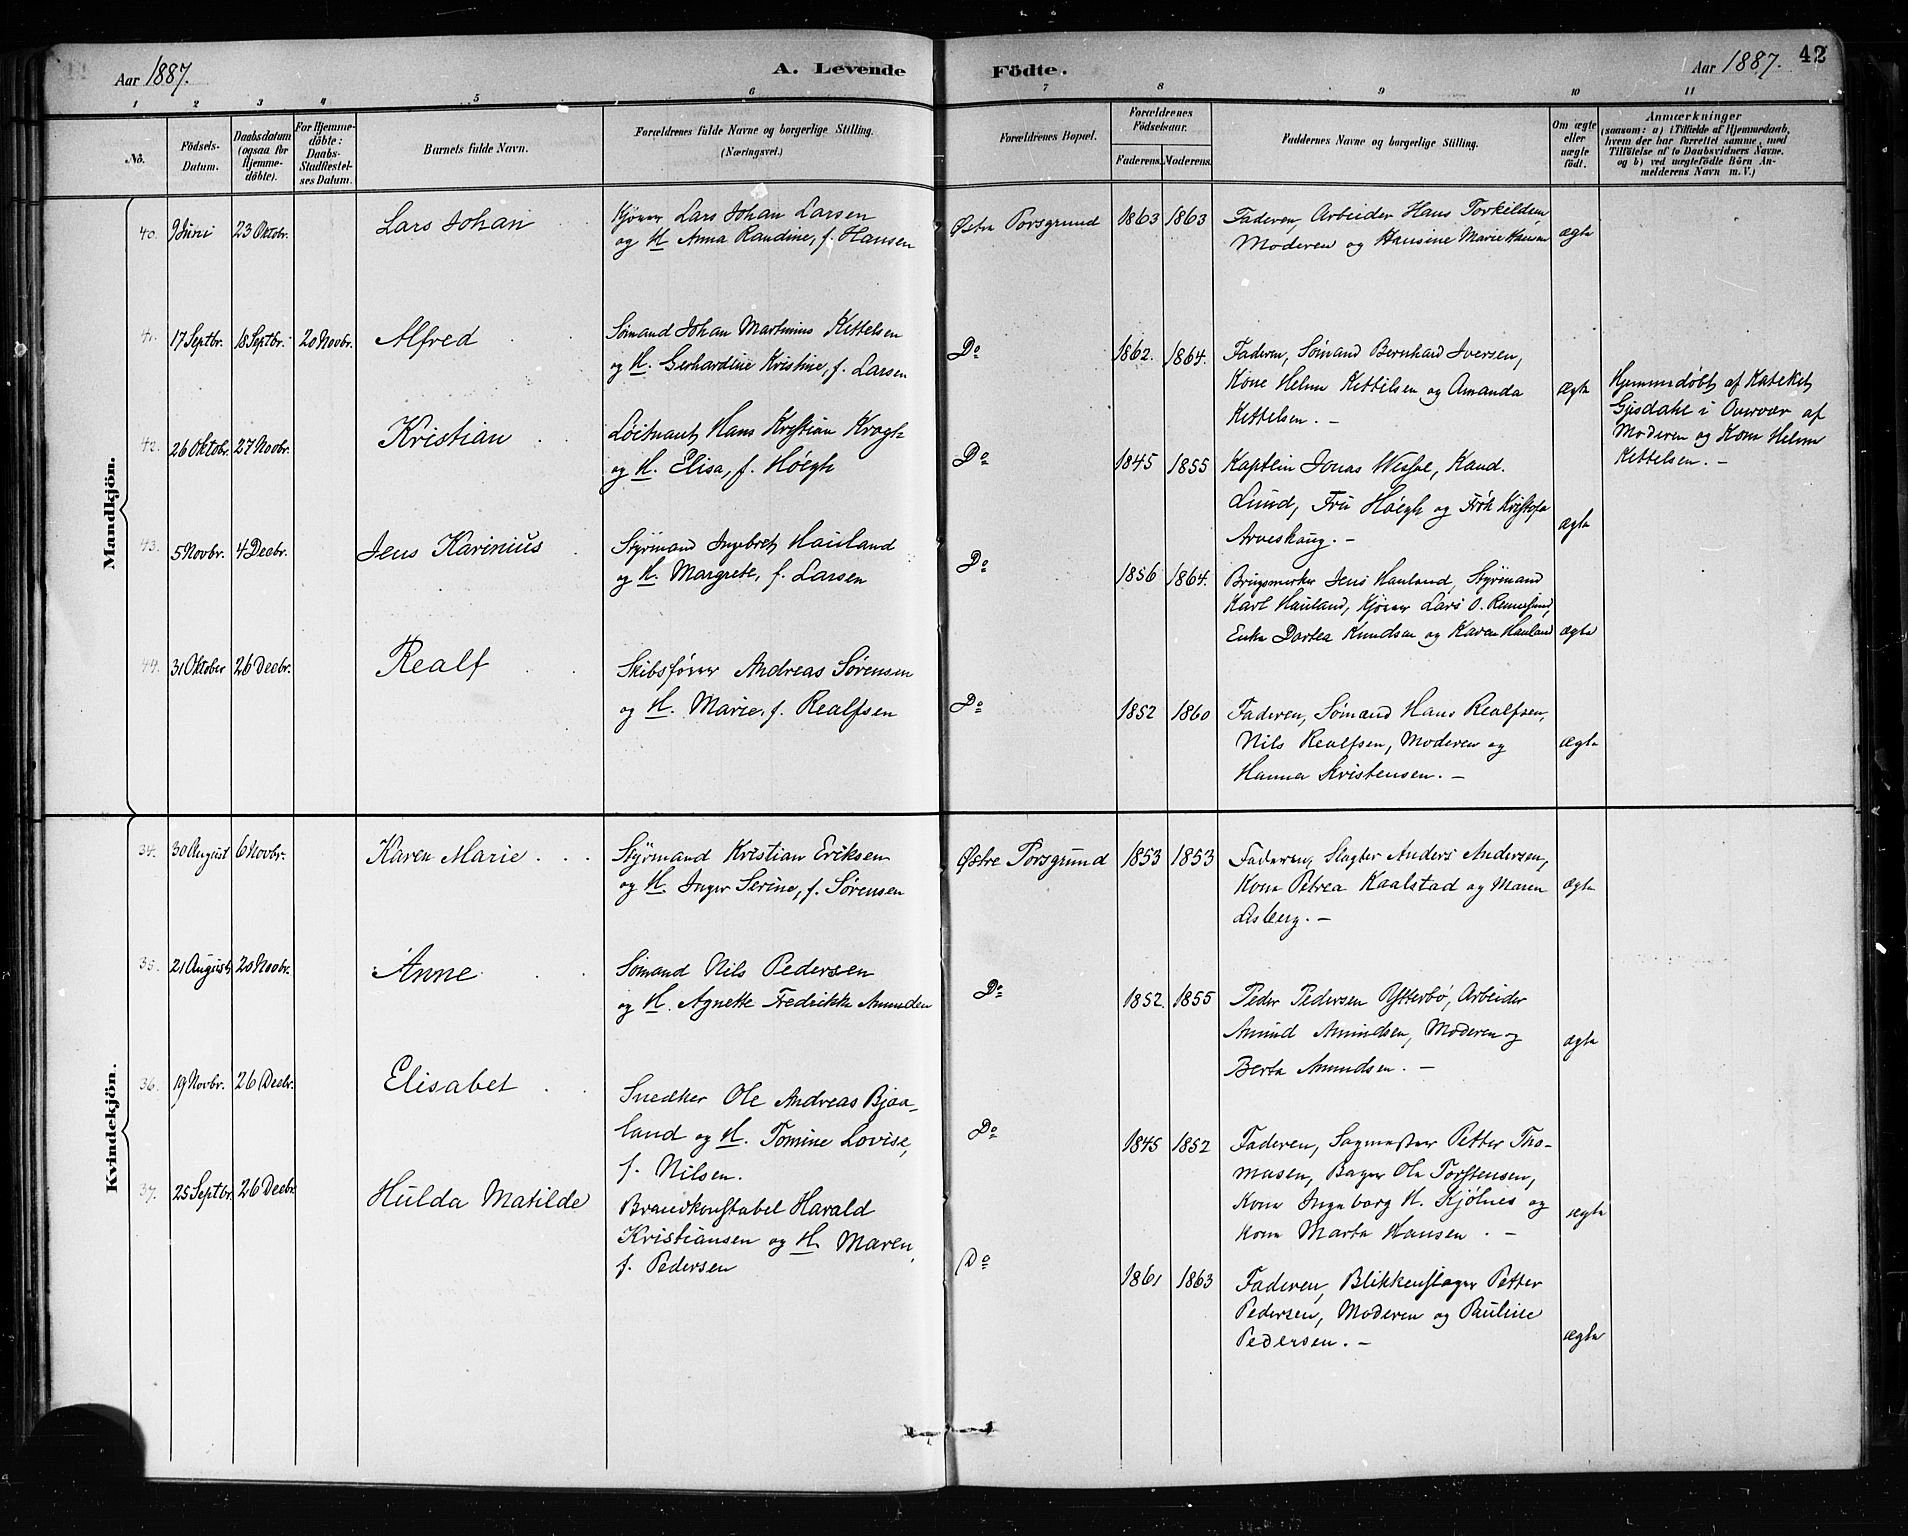 Aar 1887.
A. Levende Födte.
Aar 1887.
42
1 2 3 4 5 6 7 8 9 10 11
No.
Födsels-
Datum.
Daabsdatum
(ogsaa for
Hjemme-
döbte).
For Hjemme-
döbte:
Daabs-
Stadfæstel-
ses Datum.
Barnets fulde Navn.
Forældrenes fulde Navne og borgerlige Stilling.
(Næringsvei.)
Forældrenes Bopæl.
Forældrenes
Födselsaar.
Faderens. Moderens.
Faddernes Navne og borgerlige Stilling.
Om ægte
eller
uægte
födt.
Anmærkninger
(saasom: a) i Tilfælde af Hjemmedaab,
hvem der har forrettet samme, med
Tilföielse af to Daabsvidners Navne,
og b) ved uægtefödte Börn An-
melderens Navn m. V.)
Mandkjön.
40. 9 Juni 23 Oktbr. Lars Johan
Kjører Lars Johan Larsen
og H. Anna Randine, f. Hansen
Østre Porsgrund 1863 1863
Faderen, Arbeider Hans Torkildsen
Moderen og Hansine Marie Hansen
ægte
41. 17 Septbr. 18 Septbr. 20 Novbr. Alfred
Sømand Johan Martinius Kettelsen
og H. Gerhardine Kristine, f. Larsen
Do 1862. 1864.
Faderen, Sømand Bernhard Iversen,
Kone Helene Kettilsen og Amanda
Kettelsen. –
ægte
Hjemmedøbt af Kateket
Gjisdahl i Overvær af
Moderen og Kone Helene
Kettelsen. –
42. 26 Oktbr. 27 Novbr. Kristian
Løitnant Hans Kristian Krogh
og H. Elisa, f. Höegh
Do 1845 1855
Kaptein Jonas Wessel, Kand.
Lund, Fru Höegh og Frk Kristofa
Arveskoug. –
ægte
43. 5 Novbr. 4 Decbr. Jens Karinius
Styrmand Ingebret Hauland
og H. Margrete, f. Larsen
Do 1856 1864.
Jens Hauland, Styrmand
Karl Hauland, Kjører Lars O.
Enke Dortea Knudsen og Karen Hauland
ægte
44. 31 Oktober 26 Decbr. Realf
Skibsfører Andreas Sørensen
og H. Marie, f. Realfsen
Do 1852 1860
Faderen, Sømand Hans Realfsen,
Nils Realfsen, Moderen og
Hanna Kristensen. –
ægte
Kvindekjön.
34. 30 August 6 Novbr. Karen Marie
Styrmand Kristian Eriksen
og H. Inger Serine, f. Sørensen
Østre Porsgrund 1853 1853
Faderen, Slagter Anders Andersen,
Kone Petrea Kaalstad og Maren
Lisberg. –
ægte
35. 21 August 20 Novbr. Anne
Sømand Nils Pedersen
og H. Agnette Fredrikke Amundsen
Do 1852. 1855
Peder Pedersen Ytterbø, Arbeider
Amund Amundsen, Moderen og
Berta Amundsen. –
ægte
36. 19 Novbr. 26 Decbr. Elisabet
Snedker Ole Andreas Bjaa-
land og H. Tomine Lovise,
f. Nilsen.
Do 1845 1852
Faderen, Sagmester Petter Tho-
masen, Bager Ole Torstensen,
Kone Ingeborg H. Kjølnes og
Kone Marta Hansen. –
ægte
37. 25 Septbr. 26 Decbr. Hulda Matilde
Brandkonstabel Harald
Kristiansen og H. Maren,
f. Pedersen
Do 1861 1863
Faderen, Blikkenslager Petter
Pedersen, Moderen og Pauline
Pedersen. –
ægte